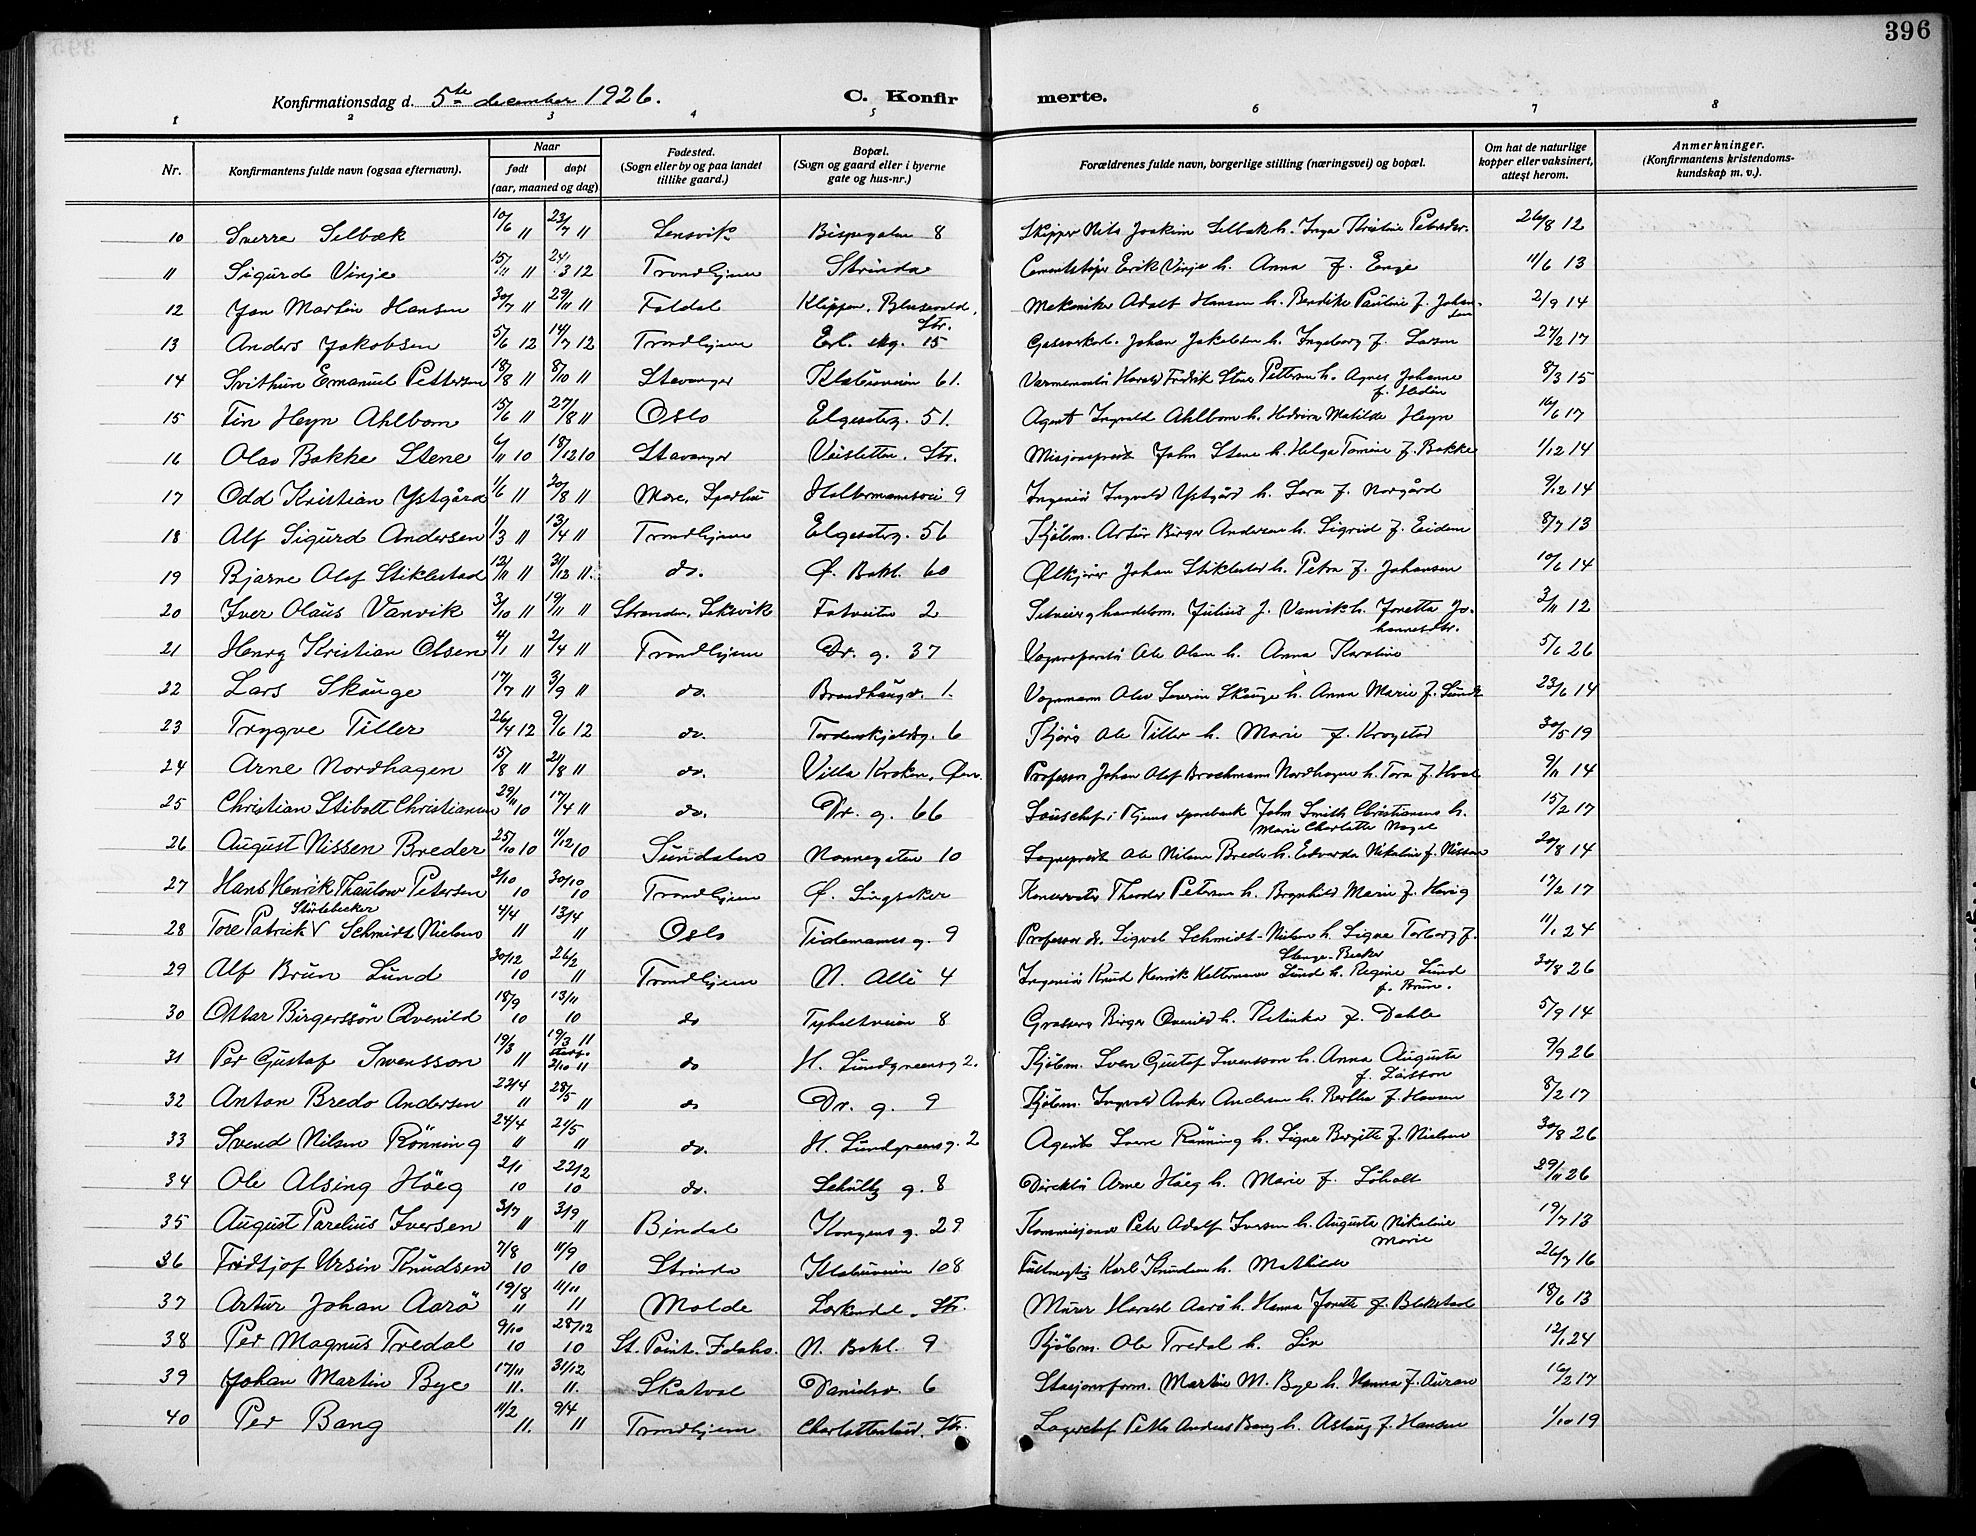 396
Konfirmationsdag d. 5te december 1926. C. Konfirmerte.
1 2 3 4 5 6 7 8
Nr. Konfirmantens fulde navn (ogsaa efternavn). Naar født døpt (aar, maaned og dag) Fødested. (Sogn eller by og paa landet tillike gaard.) Bopæl. (Sogn og gaard eller i byerne gate og hus-nr.) Forældrenes fulde navn, borgerlige stilling (næringsvei) og bopæl. Om hat de naturlige kopper eller vaksinert, attest herom. Anmerkninger. (Konfirmantens kristendoms-kundskap m. v.).
10 Sverre Selbæk 10/6 11 23/7 11 Lensvik Bispegaten 8 Skipper Nils Joakim Selbæk h. Inga Kristine Petersdr. 26/8 12
11 Sigurd Vinje 15/11 11 24/3 12 Trondhjem Strinda Cementstøper Erik Vinje h. Anna f. Enge 11/6 13
12 Jon Martin Hansen 30/7 11 29/11 11 Foldal Klippen, Blusevold, Str. Mekaniker Adolf Hansen h. Bendikte Pauline f. Johansen 2/9 14
13 Anders Jakobsen 5/6 12 14/7 12 Trondhjem Erl. Skg. 15 Gasverkarb. Johan Jakobsen h. Ingeborg f. Larsen 27/2 17
14 Svithun Emanuel Pettersen 18/8 11 8/10 11 Stavanger Klæbuveien 61. Varmemontør Harald Fredrik Stene Pettersen h. Agnes Johanne f. Hedén 8/3 15
15 Fin Heyn Ahlbom 15/6 11 27/8 11 Oslo Elgesæterg. 51. Agent Ingvald Ahlbom h. Hedvira Matilde Heyn 16/6 17
16 Olav Bakke Stene 6/11 10 18/12 10 Stavanger Veisletten, Str. Misjonsprest John Stene h. Helga Tomine f. Bakke 1/12 14
17 Odd Kristian Ystgård 1/6 11 20/8 11 Mære, Sparbu Holtermannsvei 9 Ingeniør Ingvald Ystgård h. Sara f. Norgård 9/12 14
18 Alf Sigurd Andersen 1/3 11 13/4 11 Trondhjem Elgesæterg. 56 Kjøbm. Artur Birger Andersen h. Sigrid f. Eidem 8/7 13
19 Bjarne Olaf Stiklestad 12/11 11 31/12 11. do. Ø. Bakl. 60 Ølkjører Johan Stiklestad h. Petra f. Johansen 10/6 14
20 Iver Olaus Vanvik 3/10 11 19/11 11 Stranden, Leksvik Fatveita 2 Sitveier & handelsm. Julius J. Vanvik h. Jonetta Johannesdtr. 3/11 12
21 Henry Kristian Olsen 4/1 11 2/4 11 Trondhjem Dr. g. 37 Vognreparatør Ole Olsen h. Anna Karoline 5/6 26
22 Lars Skauge 17/7 11 3/9 11 do. Brandhaugv. 1. Vognmann Olav Laurin Skauge h. Anna Marie f. Sund 23/6 14
23 Trygve Tiller 26/4 12 9/6 12 do. Tordenskjoldsg. 6 Kjører Ole Tiller h. Marie f. Krogstad 30/5 19
24 Arne Nordhagen 15/8 11 21/8 11 do. Villa Kroken, Øen. Professor Johan Olaf Brochmann Nordhagen h. Tora f. Hval 9/11 14
25 Christian Stibolt Christiansen 29/11 10 17/4 11 do. Dr. g. 66 Lånschef i Thjems sparebank John Smith Christiansens h. Marie Charlotte Nagel 15/2 17
26 August Nissen Breder 25/10 10 11/12 10 Sundalen Nonnegaten 10 Sogneprest Ole Nilsen Breder h. Edvarda Nikoline f. Nissen 20/8 14
27 Hans Henrik Thaulow Petersen 2/10 10 30/10 10 Trondhjem Ø. Singsaker Konservator Theodor Petersen h. Brynhild Marie f. Høvig 17/2 17
28 Tore Patrick V Störtebecker Schmidt Nielsen 4/4 11 13/4 11 Oslo Tidemannsg. 9 Professor dr. Sigval Schmidt-Nielsen h. Signe Torborg f. Stenge-Becker 11/1 24
29 Alf Brun Lund 30/12 10 26/2 11 Trondhjem N. Allé 4 Ingeniør Knud Henrik Holterman Lund h. Regine Lund f. Brun. 30/8 26
30 Ottar Birgerssön Qvenild 18/9 10 13/11 10 do Tyholtveien 8 Grosserer Birger Qvenild h. Katinka f. Dahle 5/9 14
31 Per Gustaf Swensson 19/3 11 19/3 11 2/10 11 do H. Lundgreensg 2. Kjøbm. Sven Gustaf Swensson h. Anna Augusta f. Larsson 9/9 26
32 Anton Bredo Andersen 22/4 11 28/5 11 do Dr. g. 9 Kjøbm. Ingvald Anker Andersen h. Bertha f. Hansen 8/2 17
33 Svend Nilsen Rönning 24/4 11 21/5 11 do. H. Lundgreensg. 2 Agent Sverre Rønning h. Signe Bergitte f. Nielsen 30/8 26
34 Ole Alsing Höeg 2/1 10 22/2 10 do. Schultz g. 8 Direktør Arne Høeg h. Marie f. Løholt 29/11 26
35 August Parelius Iversen 3/7 11 3/9 11 Bindal Kongens g. 29 Kommisjonær Peter Adolf Iversen h. Augusta Nikoline Marie 19/7 13
36 Fridtjof Ursin Knudsen 7/8 10 11/9 10 Strinda Klæbuveien 108 Fullmegtig Karl Knudsen h. Mathilde 26/7 16
37 Artur Johan Aarö 19/8 11 11/11 11 Molde Lerkendal, Str. Murer Harald Aarö h. Hanna Jonette f. Blekstad 18/6 13
38 Per Magnus Tredal 9/10 10 28/12 10 St. Point. Idaho. N. Bakl. 9 Kjöbm. Ole Tredal h. Liv 12/1 24
39 Johan Martin Bye 17/11 11. 31/12 11. Skatval Danielsv. 6 Stasjonsform. Martin M. Bye h. Hanna f. Auran 16/2 17
40 Per Bang 11/2 11. 9/4 11 Trondhjem Charlottenlund, Str. Lagerchef Petter Andreas Bang h. Aslaug f. Hansen 1/10 19